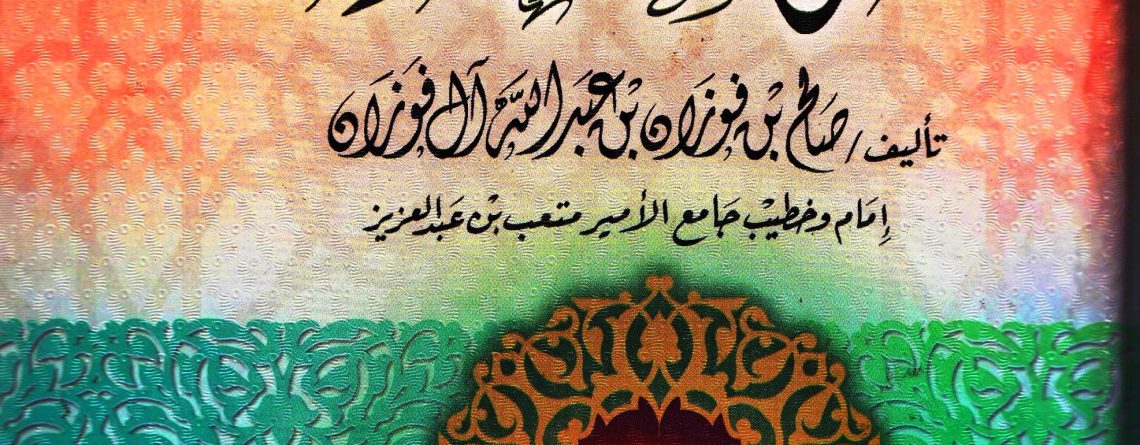 تأليف / صَالح بْن فوزَان بْن عَبَد اللَّه آل فَوزَان
إِمَام وخطيْب جَامع الأمير متعب بْن عَبد العزيز